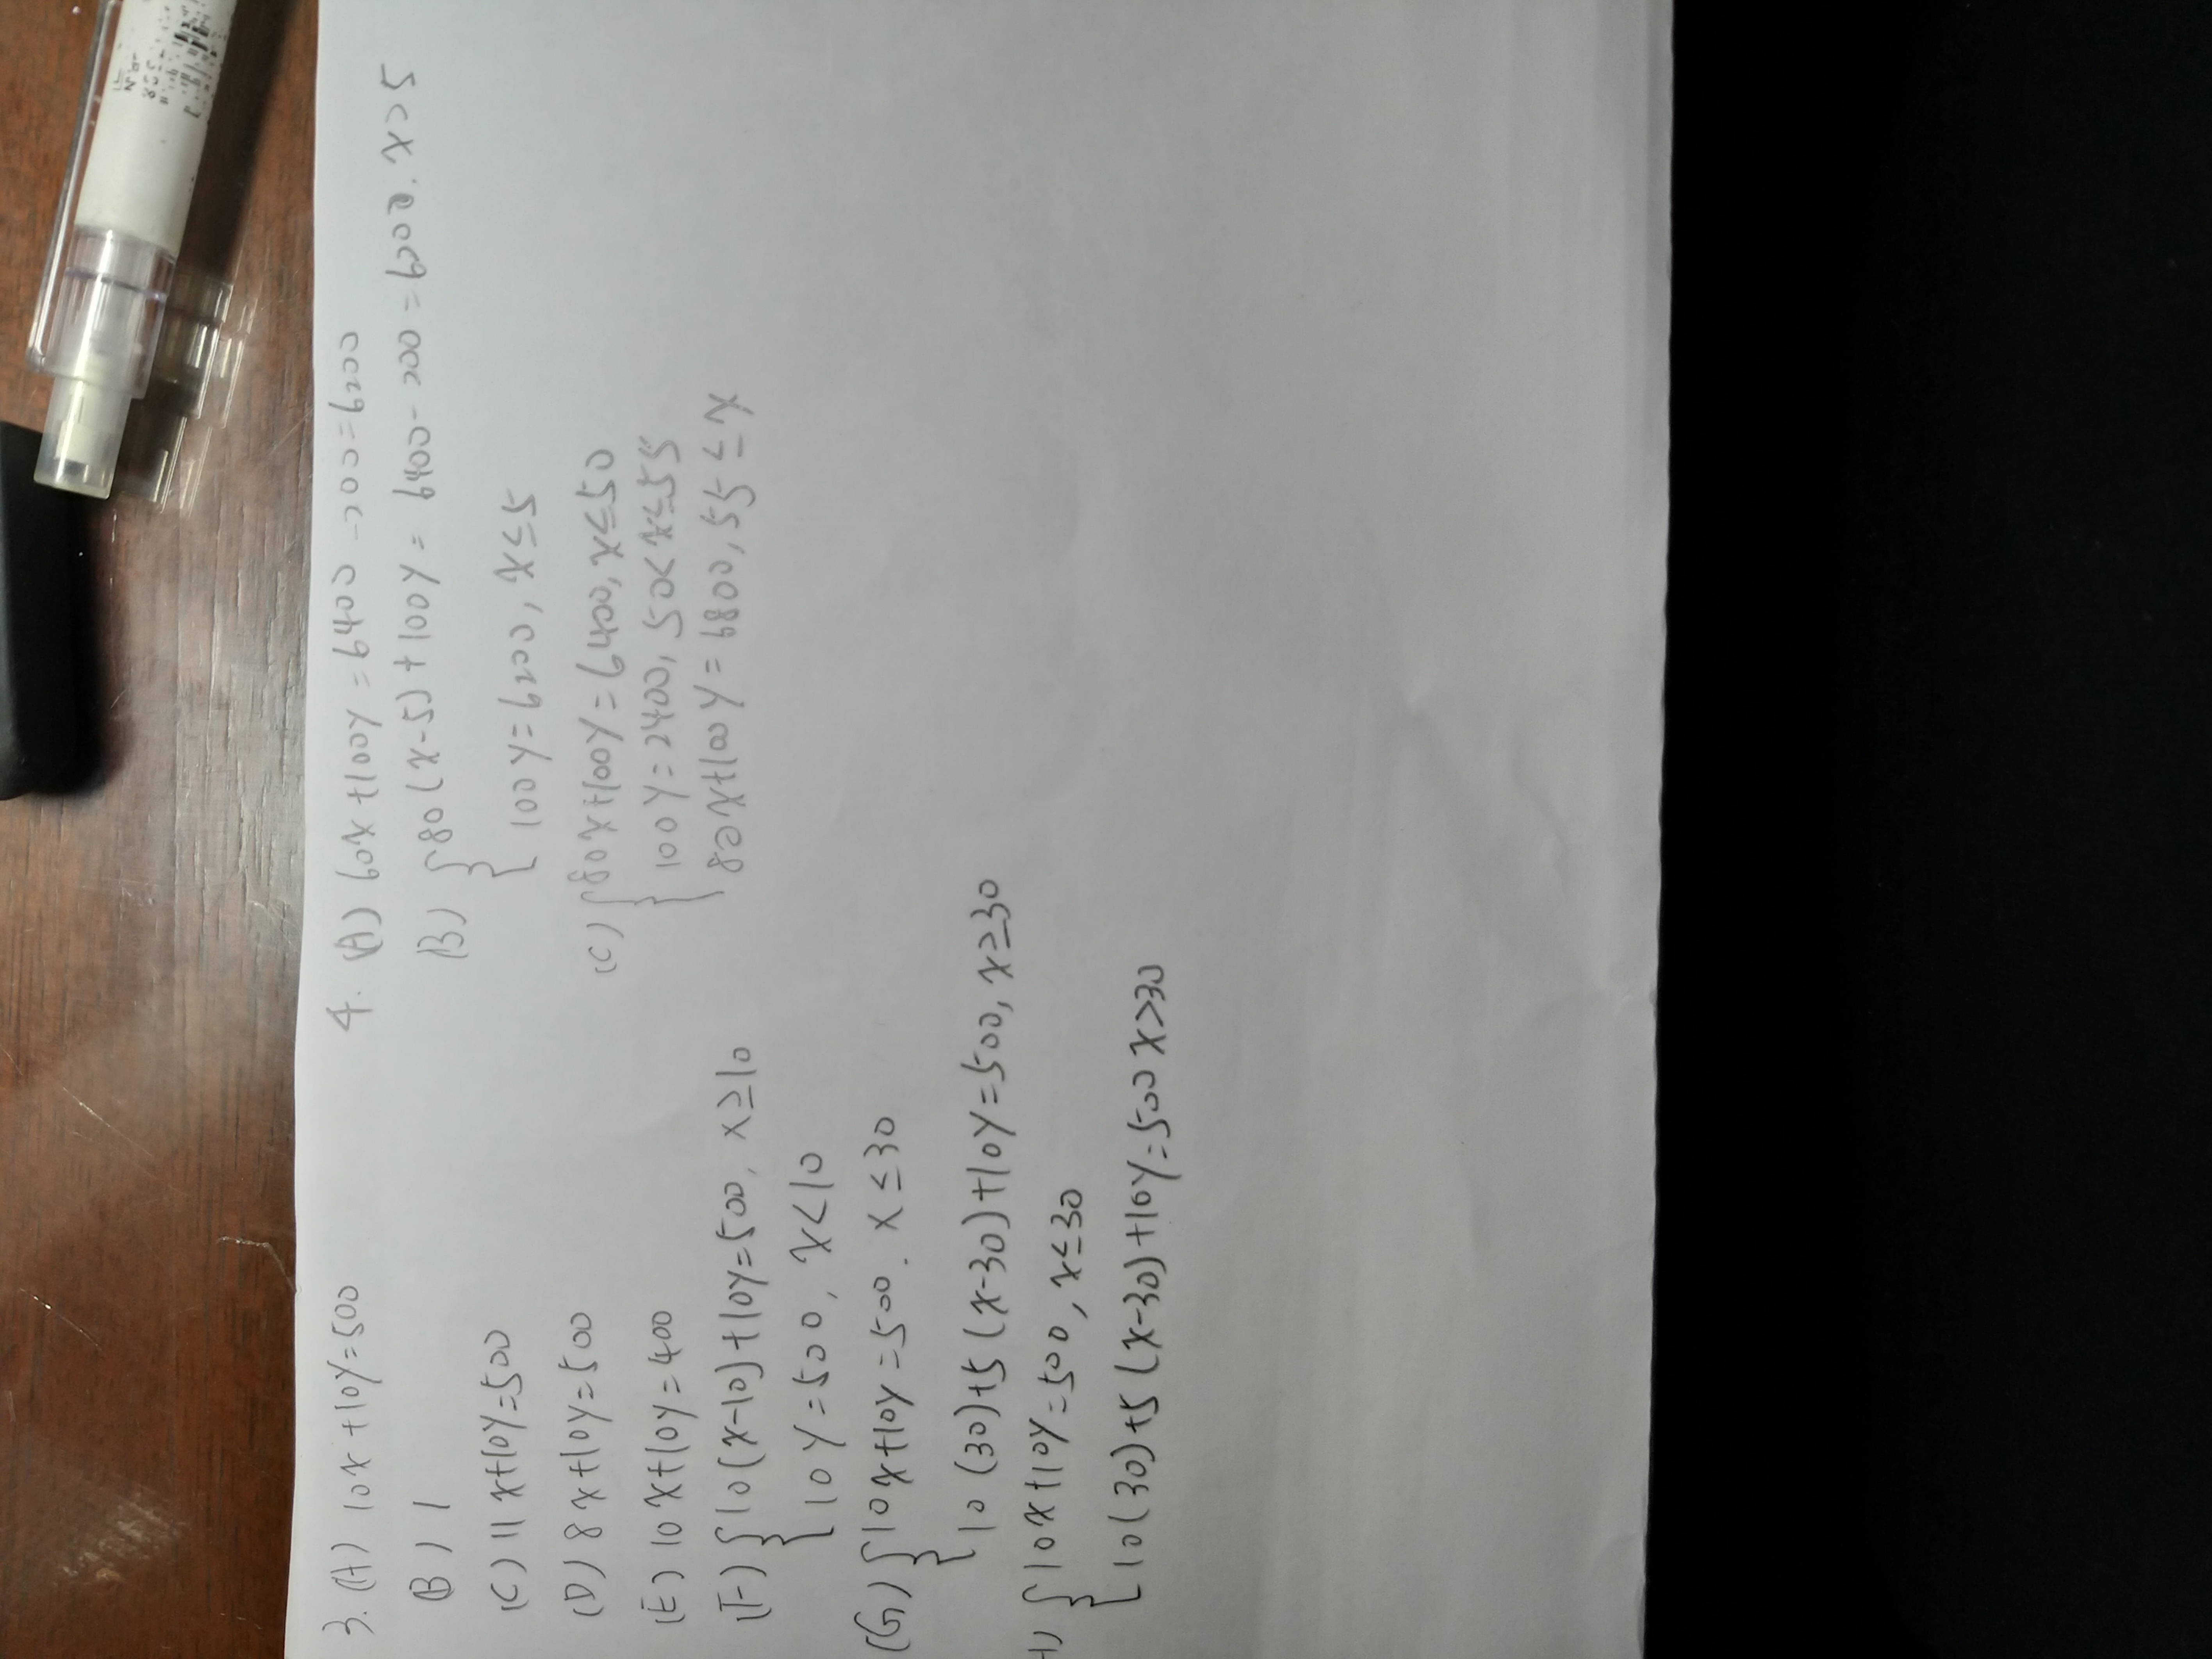 3. (A) 10x+10y=500
(B) 1
(C) 11x+10y=500
(D) 8x+10y=500
(E) 10x+10y=400
(F) { 10(x-10)+10y=500, x≥10
10y=500, x<10
(G) { 10x+10y=500. x≤30
10(30)+5(x-30)+10y=500, x≥30
H) { 10x+10y=500, x≤30
10(30)+5(x-30)+10y=500 x>30
4. (A) 60x+100y=6400-200=6200
(B) { 80(x-5)+100y=6400-200=6200. x>5
100y=6200, x≤5
(C) { 80x+100y=6400, x≤50
100y=2400, 50<x≤55
80x+100y=6800, 55≤x